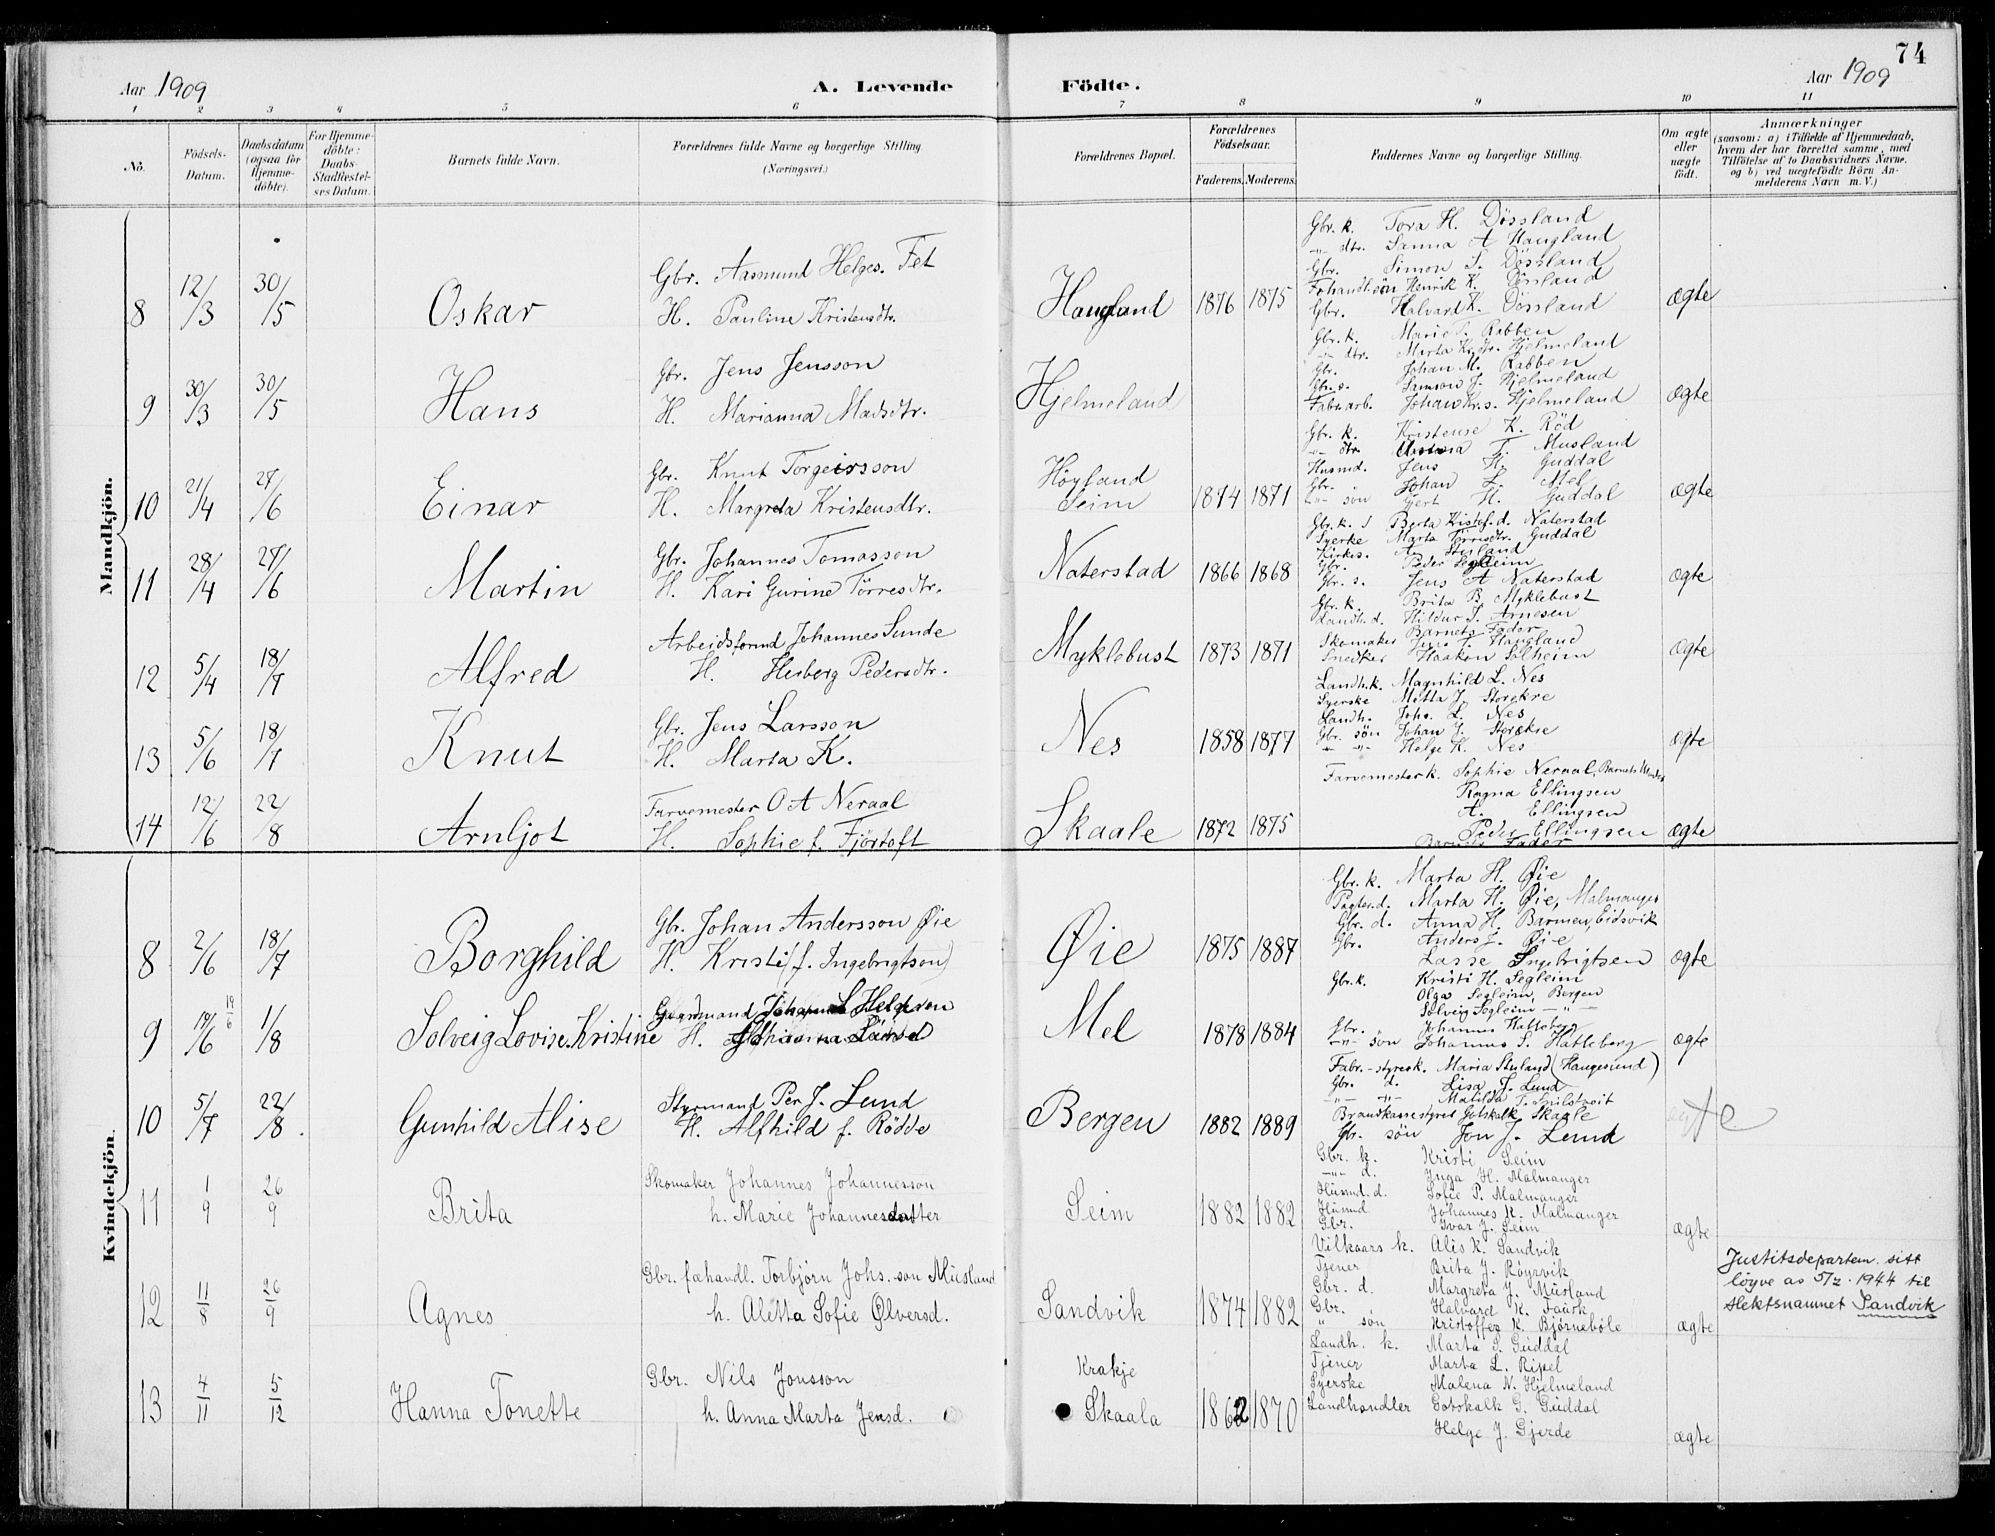 74
Aar 1909
A. Levende Födte.
Aar 1909
1 2 3 4 5 6 7 8 9 10 11
No.
Födsels-Datum.
Daabsdatum (ogsaa for Hjemme-döbte).
For Hjemme-döbte: Daabs-Stadfæstel-ses Datum.
Barnets fulde Navn.
Forældrenes fulde Navne og borgerlige Stilling. (Næringsvei.)
Forældrenes Bopæl.
Forældrenes Födselsaar.
Faderens. Moderens.
Faddernes Navne og borgerlige Stilling.
Om ægte eller uægte födt.
Anmærkninger
(saasom: a) i Tilfælde af Hjemmedaab,
hvem der har forrettet samme, med
Tilföielse af to Daabsvidners Navne.
og b) ved uægtefödte Börn An-
melderens Navn m. V.)
Mandkjön.
8 12/3 30/5 Oskar
Gbr. Aasmund Helges. Fet
H. Pauline Kristensdtr.
Haugland 1876 1875
Gbr. k. Tora H. Døssland
-"- dtr. Sanna A Haugland
Gbr. Simon S. Døssland
Henrik K. Døssland
Gbr. Halvard K. Døssland
ægte
9 30/3 30/5 Hans
Gbr. Jens Jensson
H. Marianna Madsdtr.
Hjelmeland
Gbr. k. Marie S. Rabben
-"- dtr. Marta Hjelmeland
Gbr. Johan M. Rabben
Gbr. s. Samson J. Hjelmeland
Fabr.arb. Johan Kr.s. Hjelmeland
ægte
10 21/4 27/6 Einar
Gbr. Knut Torgeirsson
H. Margreta Kristensdtr.
Høyland
Seim
1874 1871
Gbr. k. Kristense K. Röd
-"- dtr. T. Musland
Husmd. Jens H. Guddal
Gbr. Johan L. Mel
-"- søn Gert H. Guddal
ægte
11 28/4 27/6 Martin
Gbr. Johannes Tomasson
H. Kari Gurine Tørresdtr.
Naterstad 1866 1868
Gbr. k. Berta Kistof.d. Naterstad
Syerke Marta Tørrisdtr. Guddal
Kirkes. A. Stusland
Gbr. Peder Segleim
Gbr. s. Jens A Naterstad
ægte
12 5/4 18/7 Alfred
Arbeidsformd Johannes Sunde
H. Herborg Pedersdtr.
Myklebust 1873 1871
Gbr. k. Brita B. Myklebust
Landh.d. Hildur S. Arnesen
Barnets Fader
Skomaker Jens J. Haugland
Snedker Haakon Solheim
ægte
13 5/6 18/7 Knut
Gbr. Jens Larsson
H. Marta K.
Nes 1858 1877
Landh.k. Magnhild L. Nes
Syerske Metta J. Storekre
Landh. Johs. L. Nes
Gbr. søn Johan J. Storekre
-"- -"- Helge K. Nes
ægte
14 12/6 22/8 Arnljot
Farvemester O A Neraal
H. Sophie f. Fjørtoft
Skaale 1872 1875
Farvemester k. Sophie Neraal, Barnets Moder
Ragna Ellingsen
A. Ellingsen
Peder Ellingsen
Barnets Fader
ægte
Kvindekjön.
8 2/6 18/7 Borghild
Gbr. Johan Andersson Øie
H. Kristi (f. Ingebrigtson)
Øie 1875 1887
Gbr. k. Marta H. Øie
Pagter.d. Marta H. Øie, Malmanger
Gbr. d. Anna H. Barmen, Eidsvik
Gbr. Anders J. Øie
Lasse Ingebrigtsen
ægte
9 19/6 19/6 1/8 Solveig Lovise Kristine
Gaardmand Johannes Helgesen
H.
Mel 1878 1884
Gbr.k. Kristi H. Segleim
Olga Segleim, Bergen
Solveig Segleim -"-
Gbr. Johannes Hatleberg
-"- søn Johannes S. Hatleberg
ægte
10 5/7 22/8. Gunhild Alise
Styrmand Per J. Lund
H. Alfhild f. Rødde
Bergen 1882 1889
Fabr.-styresk. Maria Stusland (Haugesund)
Gbr. d. Lisa J. Lund
-"- -"- Matilda T. Snilstveit
Brandkassestyrer Gotskalk Skaale
Gbr. søn Jon J. Lund
ægte
11 1/9 26/9 Brita
Skomaker Johannes Johannesson
h. Marie Johannesdatter
Seim 1882 1882
Gbr. k. Kristi Seim
-"- d. Inga H. Malmanger
Husmd. d. Sofie P. Malmanger
Husmd Johannes K. Malmanger
Gbr. Ivar J. Seim
ægte
12 11/8 26/9 Agnes
Gbr. fæhandl. Torbjörn Johs. son Musland
h. Aletta Sofie Ølversd.
Sandvik 1874 1882
Vilkaars k. Alis K. Sandvik
Tjener Brita J. Röyrvik
Gbr. d. Margreta J. Musland
Gbr. Halvard K. Fausk
" søn Kristoffer K. Björnebole
ægte
Justitsdepartem. sitt
löyve av 5/2. 1944 til
slektsnamnet Sandvik
13 4/11 5/12 Hanna Tonette
Gbr. Nils Jonsson
h. Anna Marta Jensd.
Krakje
Skaala
1862 1870
Landh. k. Marta S. Guddal
Tjener Marta L. Ripel
Syerske Malena N. Hjelmeland
Landhandler Gotskalk G. Guddal
Helge J. Gjerde
ægte